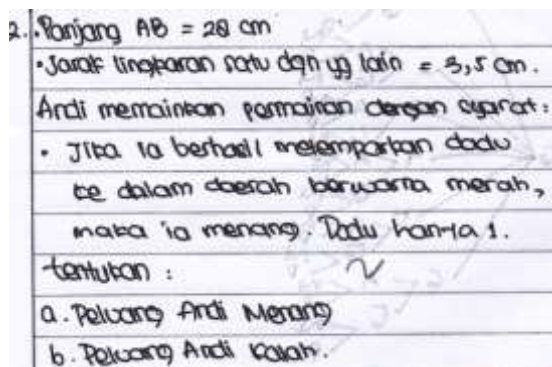 2. • Panjang AB = 28 cm
• Jarak lingkaran satu dgn yg lain = 3,5 cm.
Andi memainkan permainan dengan syarat :
• Jika ia berhasil melemparkan dadu
ke dalam daerah berwarna merah,
maka ia menang. Dadu hanya 1.
tentukan :
a. Peluang Andi Menang
b. Peluang Andi Kalah.